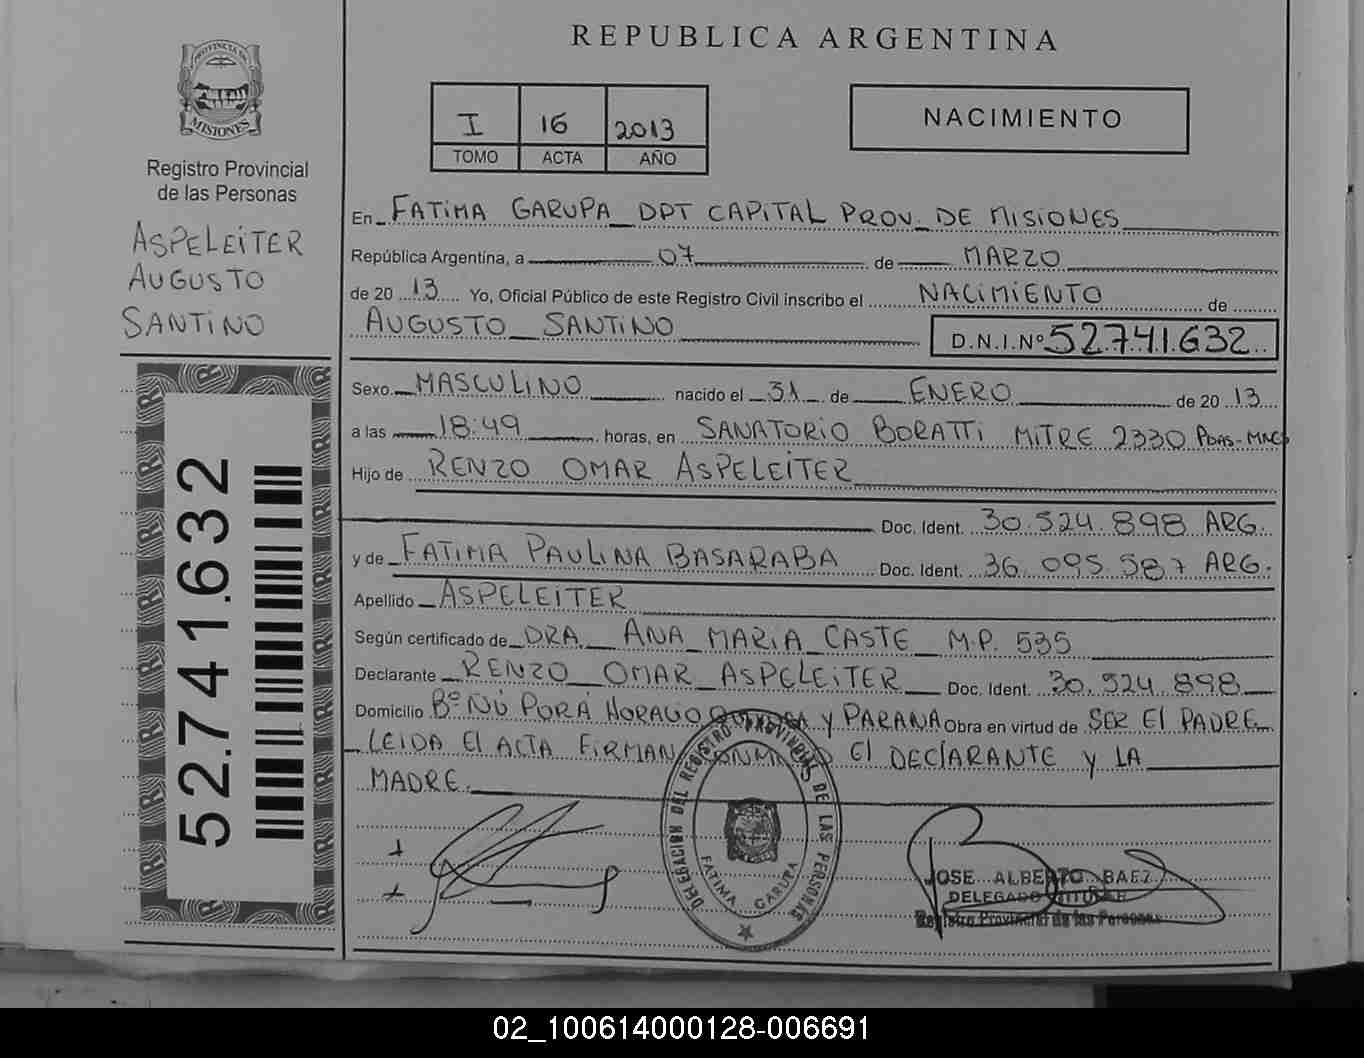 REPUBLICA ARGENTINA
PROVINCIA DE
MISIONES
Registro Provincial
de las Personas
ASPELEITER
AUGUSTO
SANTINO
52.741.632
I 16 2013
TOMO ACTA AÑO
NACIMIENTO
En FATIMA GARUPA DPT CAPITAL PROV. DE MISIONES
República Argentina, a 07 de MARZO
de 20 13 Yo, Oficial Público de este Registro Civil inscribo el NACIMIENTO de
AUGUSTO SANTINO D.N.I.Nº 52.741.632
Sexo MASCULINO nacido el 31 de ENERO de 20 13
a las 18:49 horas, en SANATORIO BORATTI MITRE 2330 Pdas-Mnes
Hijo de RENZO OMAR ASPELEITER
Doc. Ident. 30.524.898 ARG.
y de FATIMA PAULINA BASARABA Doc. Ident. 36.095.587 ARG.
Apellido ASPELEITER
Según certificado de DRA. ANA MARIA CASTE M.P. 535
Declarante RENZO OMAR ASPELEITER Doc. Ident. 30.524.898
Domicilio Bº ÑU PORÁ HORACIO QUIROGA Y PARANA Obra en virtud de SER El PADRE
LEIDA El ACTA FIRMAN CONMIGO El DECLARANTE y LA
MADRE.
DELEGACION DEL REGISTRO PROVINCIAL DE LAS PERSONAS
FATIMA GARUPA
JOSE ALBERTO BAEZ
DELEGADO TITULAR
Registro Provincial de las Personas
02_100614000128-006691